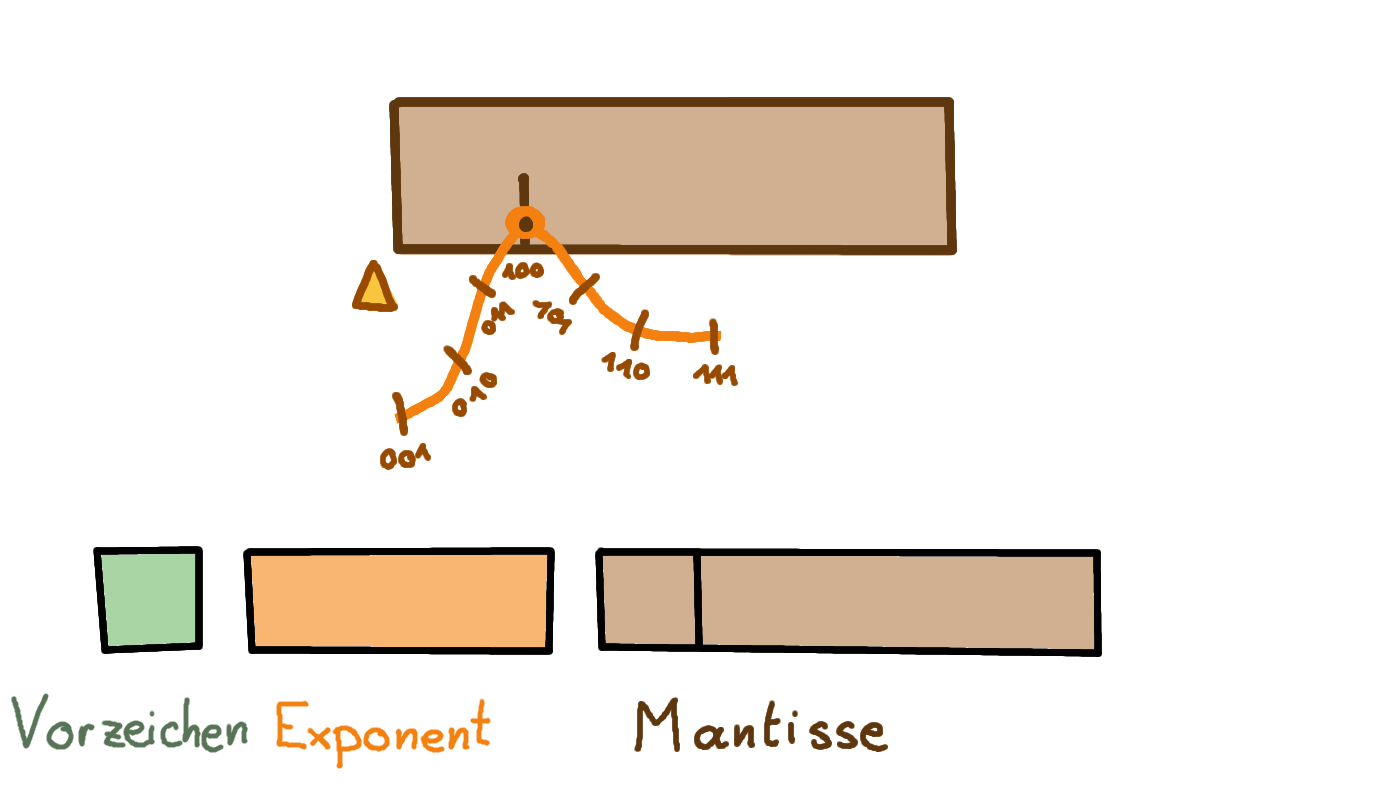 100
011
101
010
110
111
001
Vorzeichen Exponent Mantisse